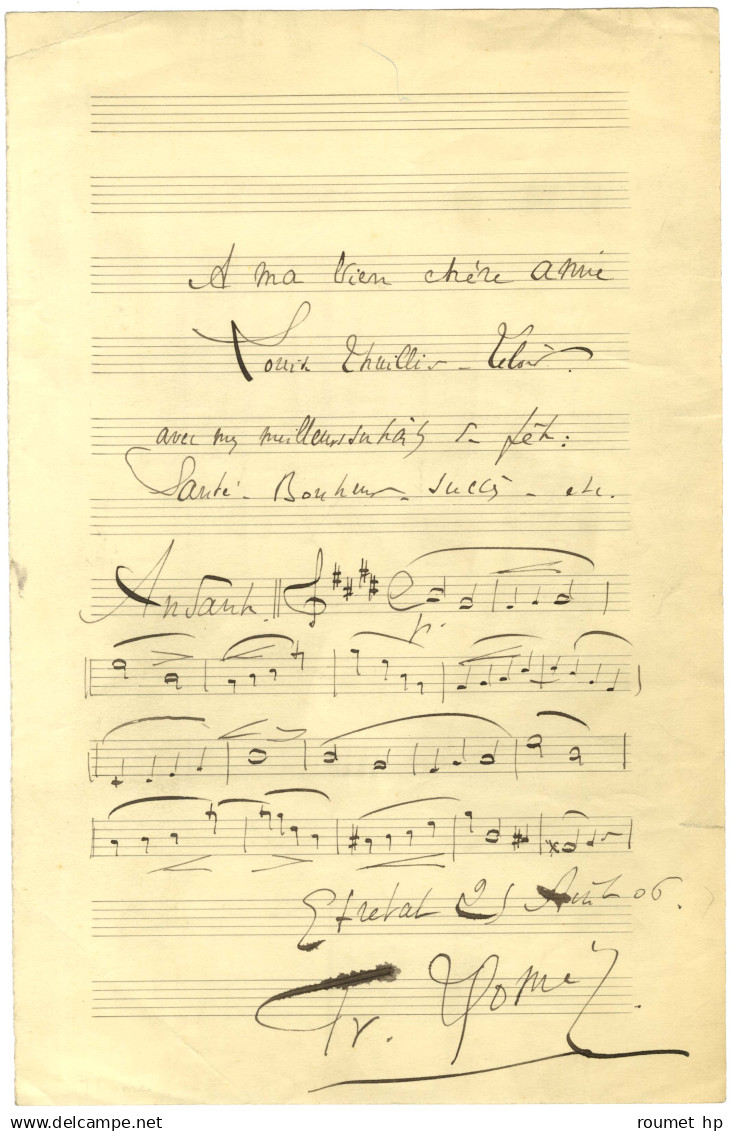 A ma bien chère amie
Louise Thuillier - Leloir.
avec mes meilleurs souhaits de fête:
Santé - Bonheur - Succès - etc.
Andante
Etretat 25 Août 06.
Fr.
roumet hp